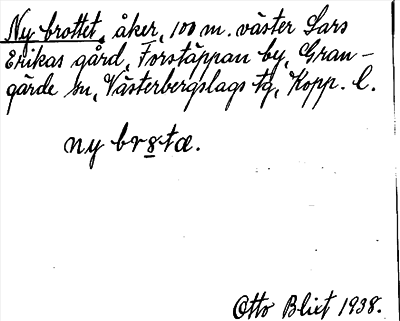 Ny brottet, åker, 100 m. väster Lars
Erikas gård, Forstäppan by, Gran-
gärde sn, Västerbergslags tg, Kopp. l.
ny br8tæ.
Otto Blixt 1938.